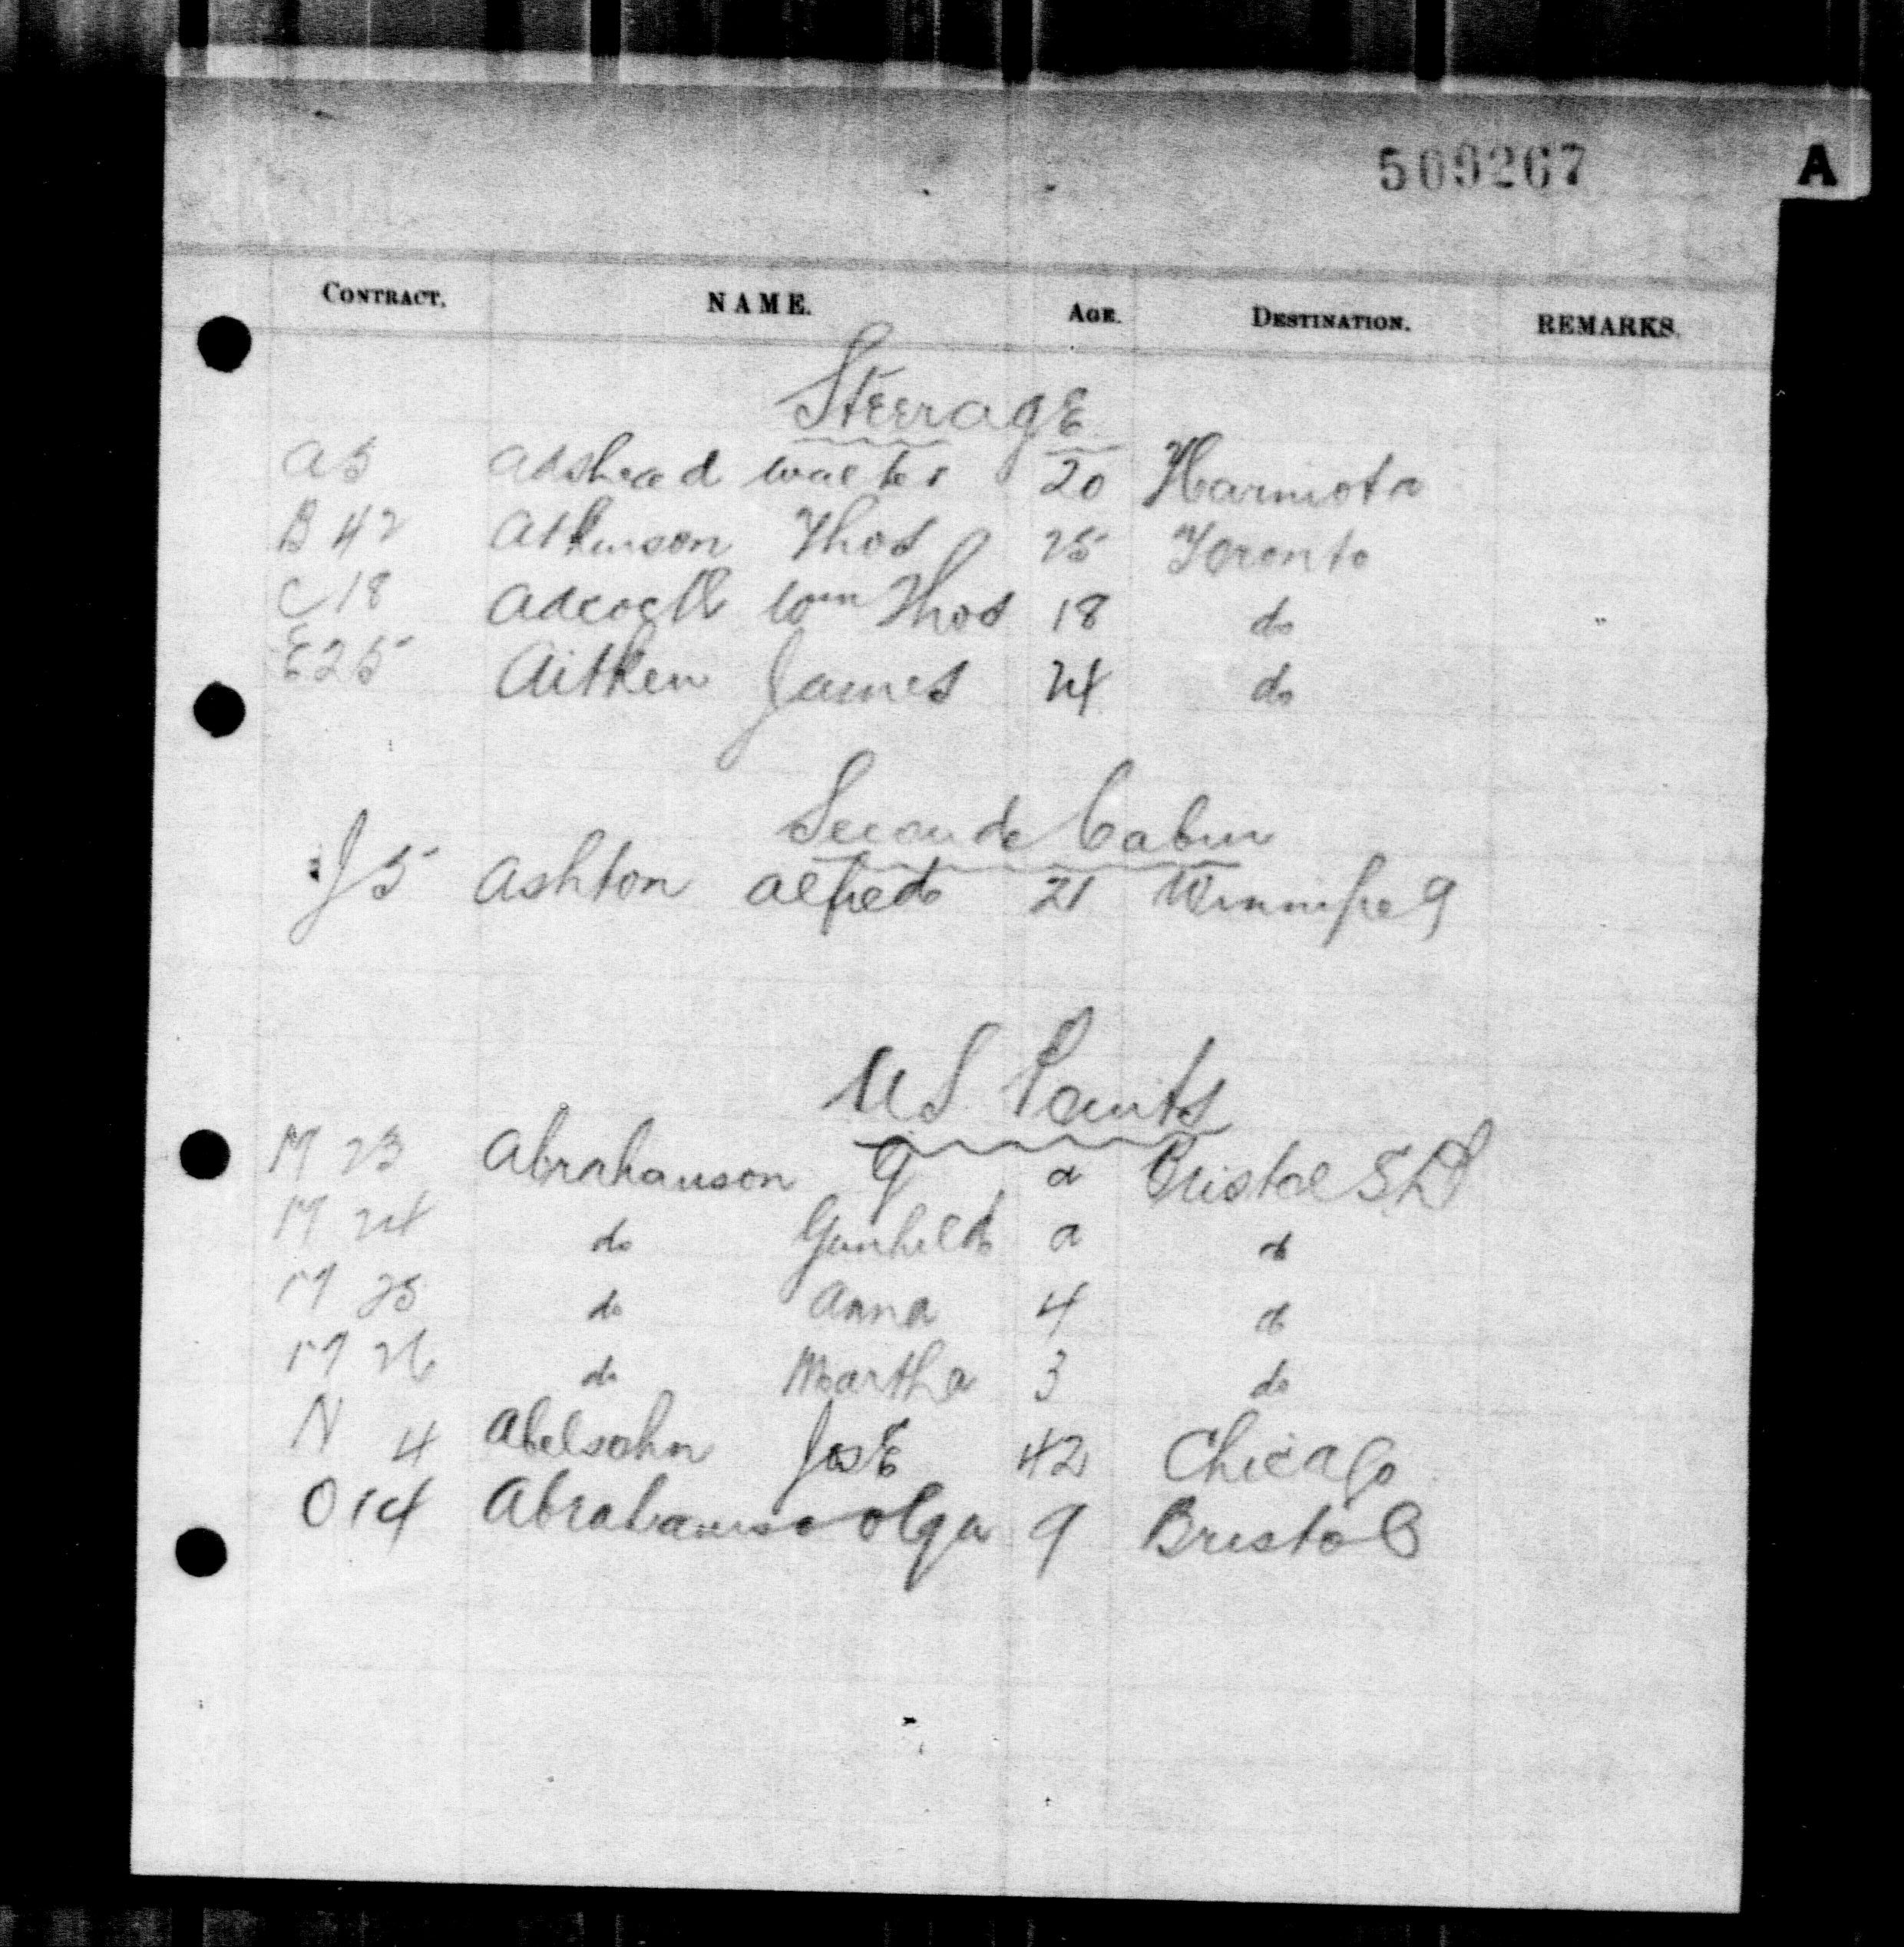 509267 A
CONTRACT. NAME. AGE. DESTINATION. REMARKS.
Steerage
A5 Adshead Walter 20 Hamiota
B 42 Atkinson Thos 25 Toronto
C 18 Adcock Wm Thos 18 do
E25 Aitken James 24 do
Second Cabin
J5 Ashton Alfred 21 Winnipeg
US Points
M 23 Abrahamson G a Bristol SD
M 24 do Gunhild a do
M 25 do Anna 4 do
M 26 do Martha 3 do
N 4 Abelsohn JosE 42 Chicago
O 14 Abrahamso Olga 9 Bristol